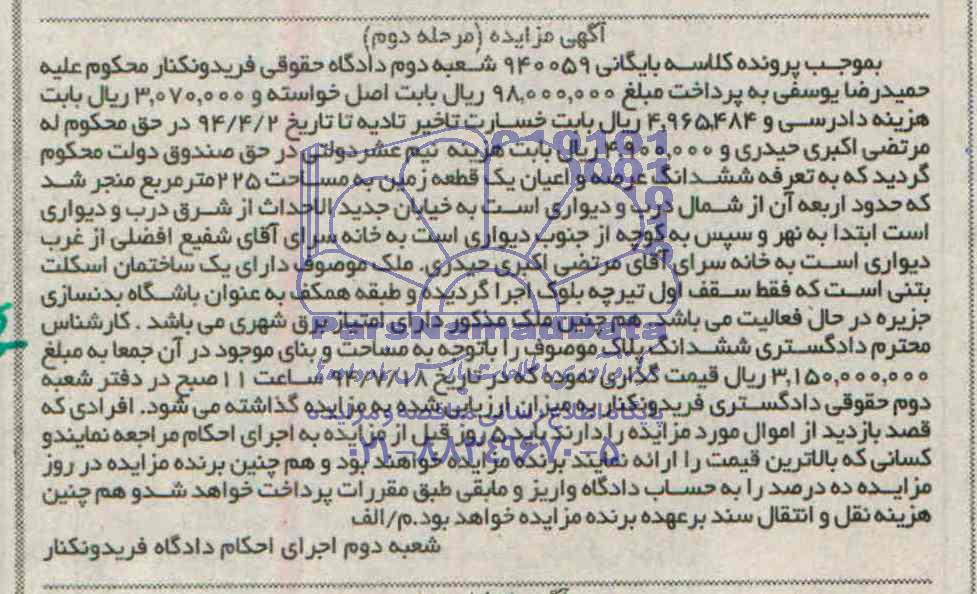 آگهی مزایده (مرحله دوم)
بموجب پرونده کلاسه بایگانی ۹۴۰۰۵۹ شعبه دوم دادگاه حقوقی فریدونکنار محکوم علیه
حمیدرضا یوسفی به پرداخت مبلغ ۹۸,۰۰۰,۰۰۰ ریال بابت اصل خواسته و ۳,۰۷۰,۰۰۰ ریال بابت
هزینه دادرسی و ۴,۹۶۵,۴۸۴ ریال بابت خسارت تاخیر تادیه تا تاریخ ۹۴/۴/۲ در حق محکوم له
مرتضی اکبری حیدری و ۴,۹۰۰,۰۰۰ ریال بابت هزینه نیم عشر دولتی در حق صندوق دولت محکوم
گردید که به تعرفه ششدانگ عرصه و اعیان یک قطعه زمین به مساحت ۲۲۵ مترمربع منجر شد
که حدود اربعه آن از شمال درب و دیواری است به خیابان جدید الاحداث از شرق درب و دیواری
است ابتدا به نهر و سپس به کوچه از جنوب دیواری است به خانه سرای آقای شفیع افضلی از غرب
دیواری است به خانه سرای آقای مرتضی اکبری حیدری. ملک موصوف دارای یک ساختمان اسکلت
بتنی است که فقط سقف اول تیرچه بلوک اجرا گردیده و طبقه همکف به عنوان باشگاه بدنسازی
جزیره در حال فعالیت می باشد. هم چنین ملک مذکور دارای امتیاز برق شهری می باشد . کارشناس
محترم دادگستری ششدانگ پلاک موصوف را باتوجه به مساحت و بنای موجود در آن جمعا به مبلغ
۳,۱۵۰,۰۰۰,۰۰۰ ریال قیمت گذاری نموده که در تاریخ ۹۴/۷/۱۸ ساعت ۱۱ صبح در دفتر شعبه
دوم حقوقی دادگستری فریدونکنار به میزان ارزیابی شده به مزایده گذاشته می شود. افرادی که
قصد بازدید از اموال مورد مزایده را دارند باید ۵ روز قبل از مزایده به اجرای احکام مراجعه نمایندو
کسانی که بالاترین قیمت را ارائه نمایند برنده مزایده خواهند بود و هم چنین برنده مزایده در روز
مزایده ده درصد را به حساب دادگاه واریز و مابقی طبق مقررات پرداخت خواهد شدو هم چنین
هزینه نقل و انتقال سند برعهده برنده مزایده خواهد بود.م/الف
شعبه دوم اجرای احکام دادگاه فریدونکنار
ParsNamadData
۰۲۱-۸۸۳۴۹۶۷۰-۵